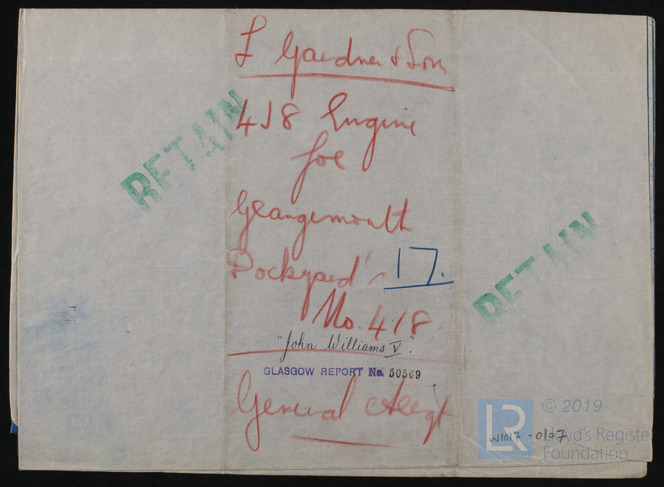 L Gardner & Son
4J8 Engine
for
Grangemouth
Dockyard's 17.
No. 418
"John Williams V".
GLASGOW REPORT No. 50569
General Arrgt
RETAIN
RETAIN
LR
© 2019
Lloyd's Register
Foundation
W1017-0107